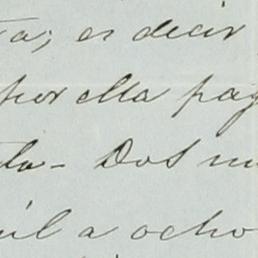 ta; es decir
por ella pag
ta - Dos m
úl a ocho